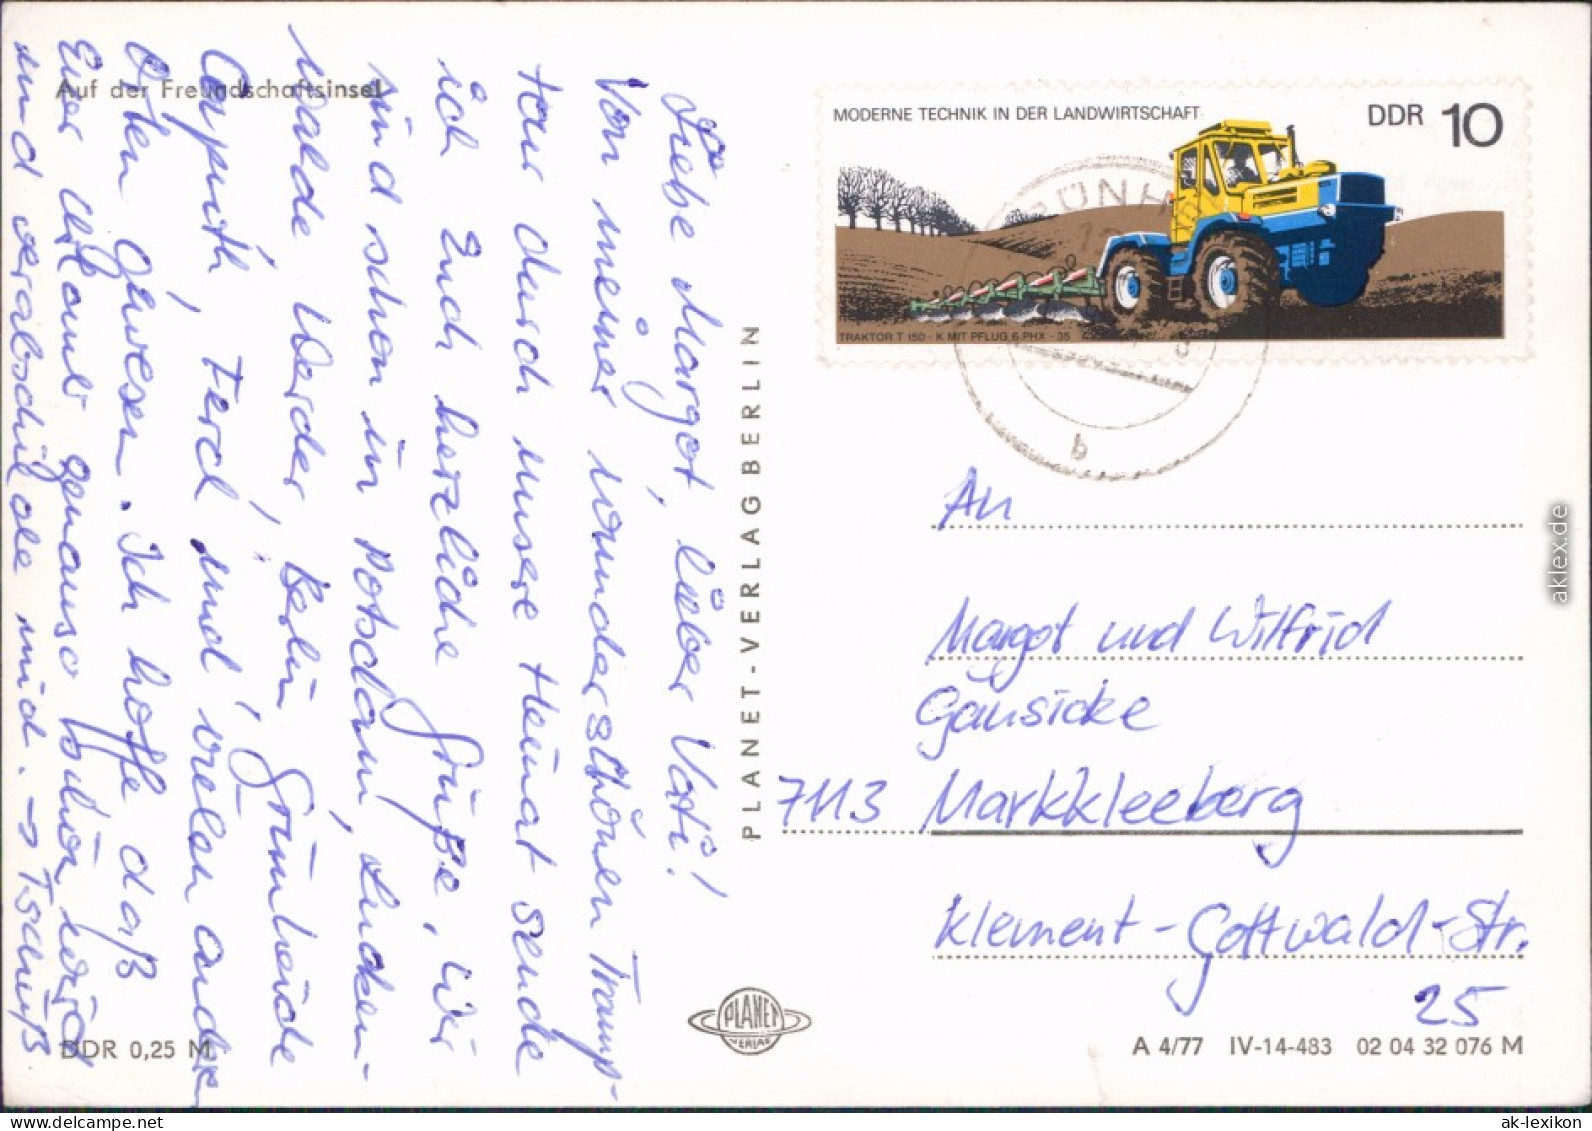 Auf der Freundschaftsinsel
Liebe Margot, lieber Vati!
Von meiner wunderschönen Tramp-
tour durch unsere Heimat sende
ich Euch herzliche Grüße, Wir
sind schon in Potsdam, Lucken-
walde, Werder, Berlin, Grünheide
Caputh, Ferch und vielen anderen
Orten gewesen. Ich hoffe daß
Euer Urlaub genauso schön wird
und verabschiede mich. → Tschüß
DDR 0,25 M
PLANET-VERLAG BERLIN
PLANET
VERLAG
MODERNE TECHNIK IN DER LANDWIRTSCHAFT
DDR 10
TRAKTOR T 150-K MIT PFLUG 6 PHX-35
b
An
Margot und Wilfried
Gänsicke
7113 Markkleeberg
Klement-Gottwald-Str.
25
A 4/77 IV-14-483 02 04 32 076 M
aklex.de
ak-lexikon